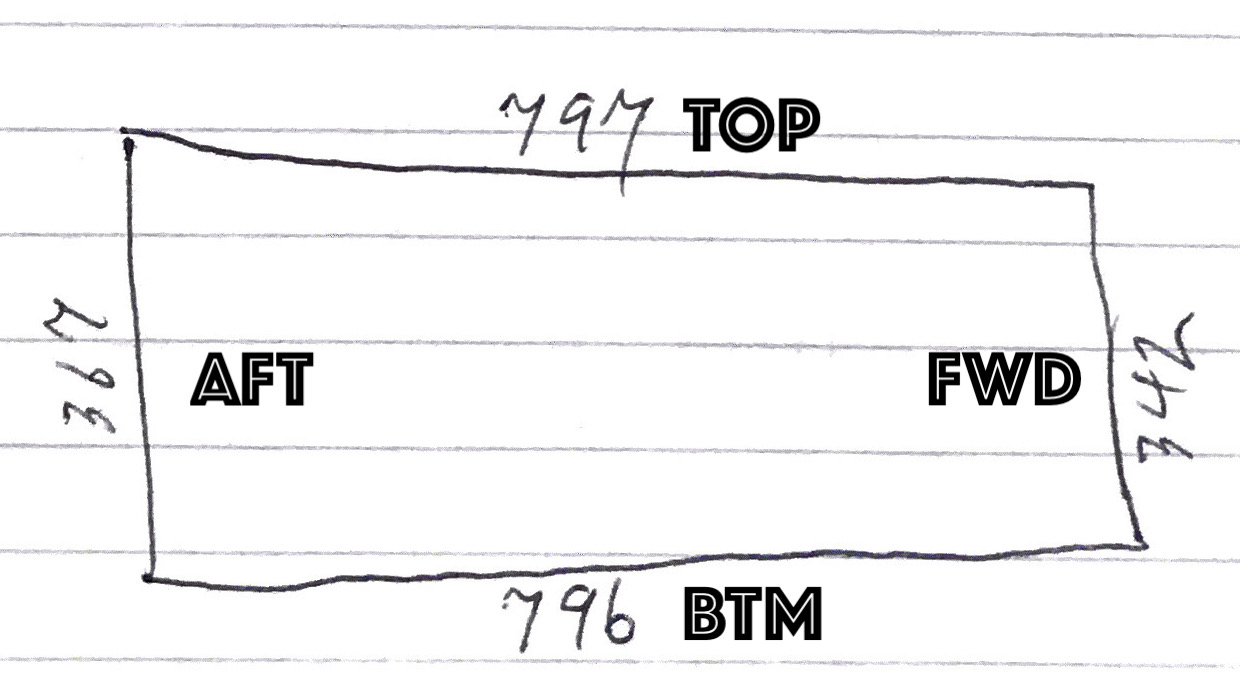 797 TOP
367
AFT
FWD
342
796 BTM